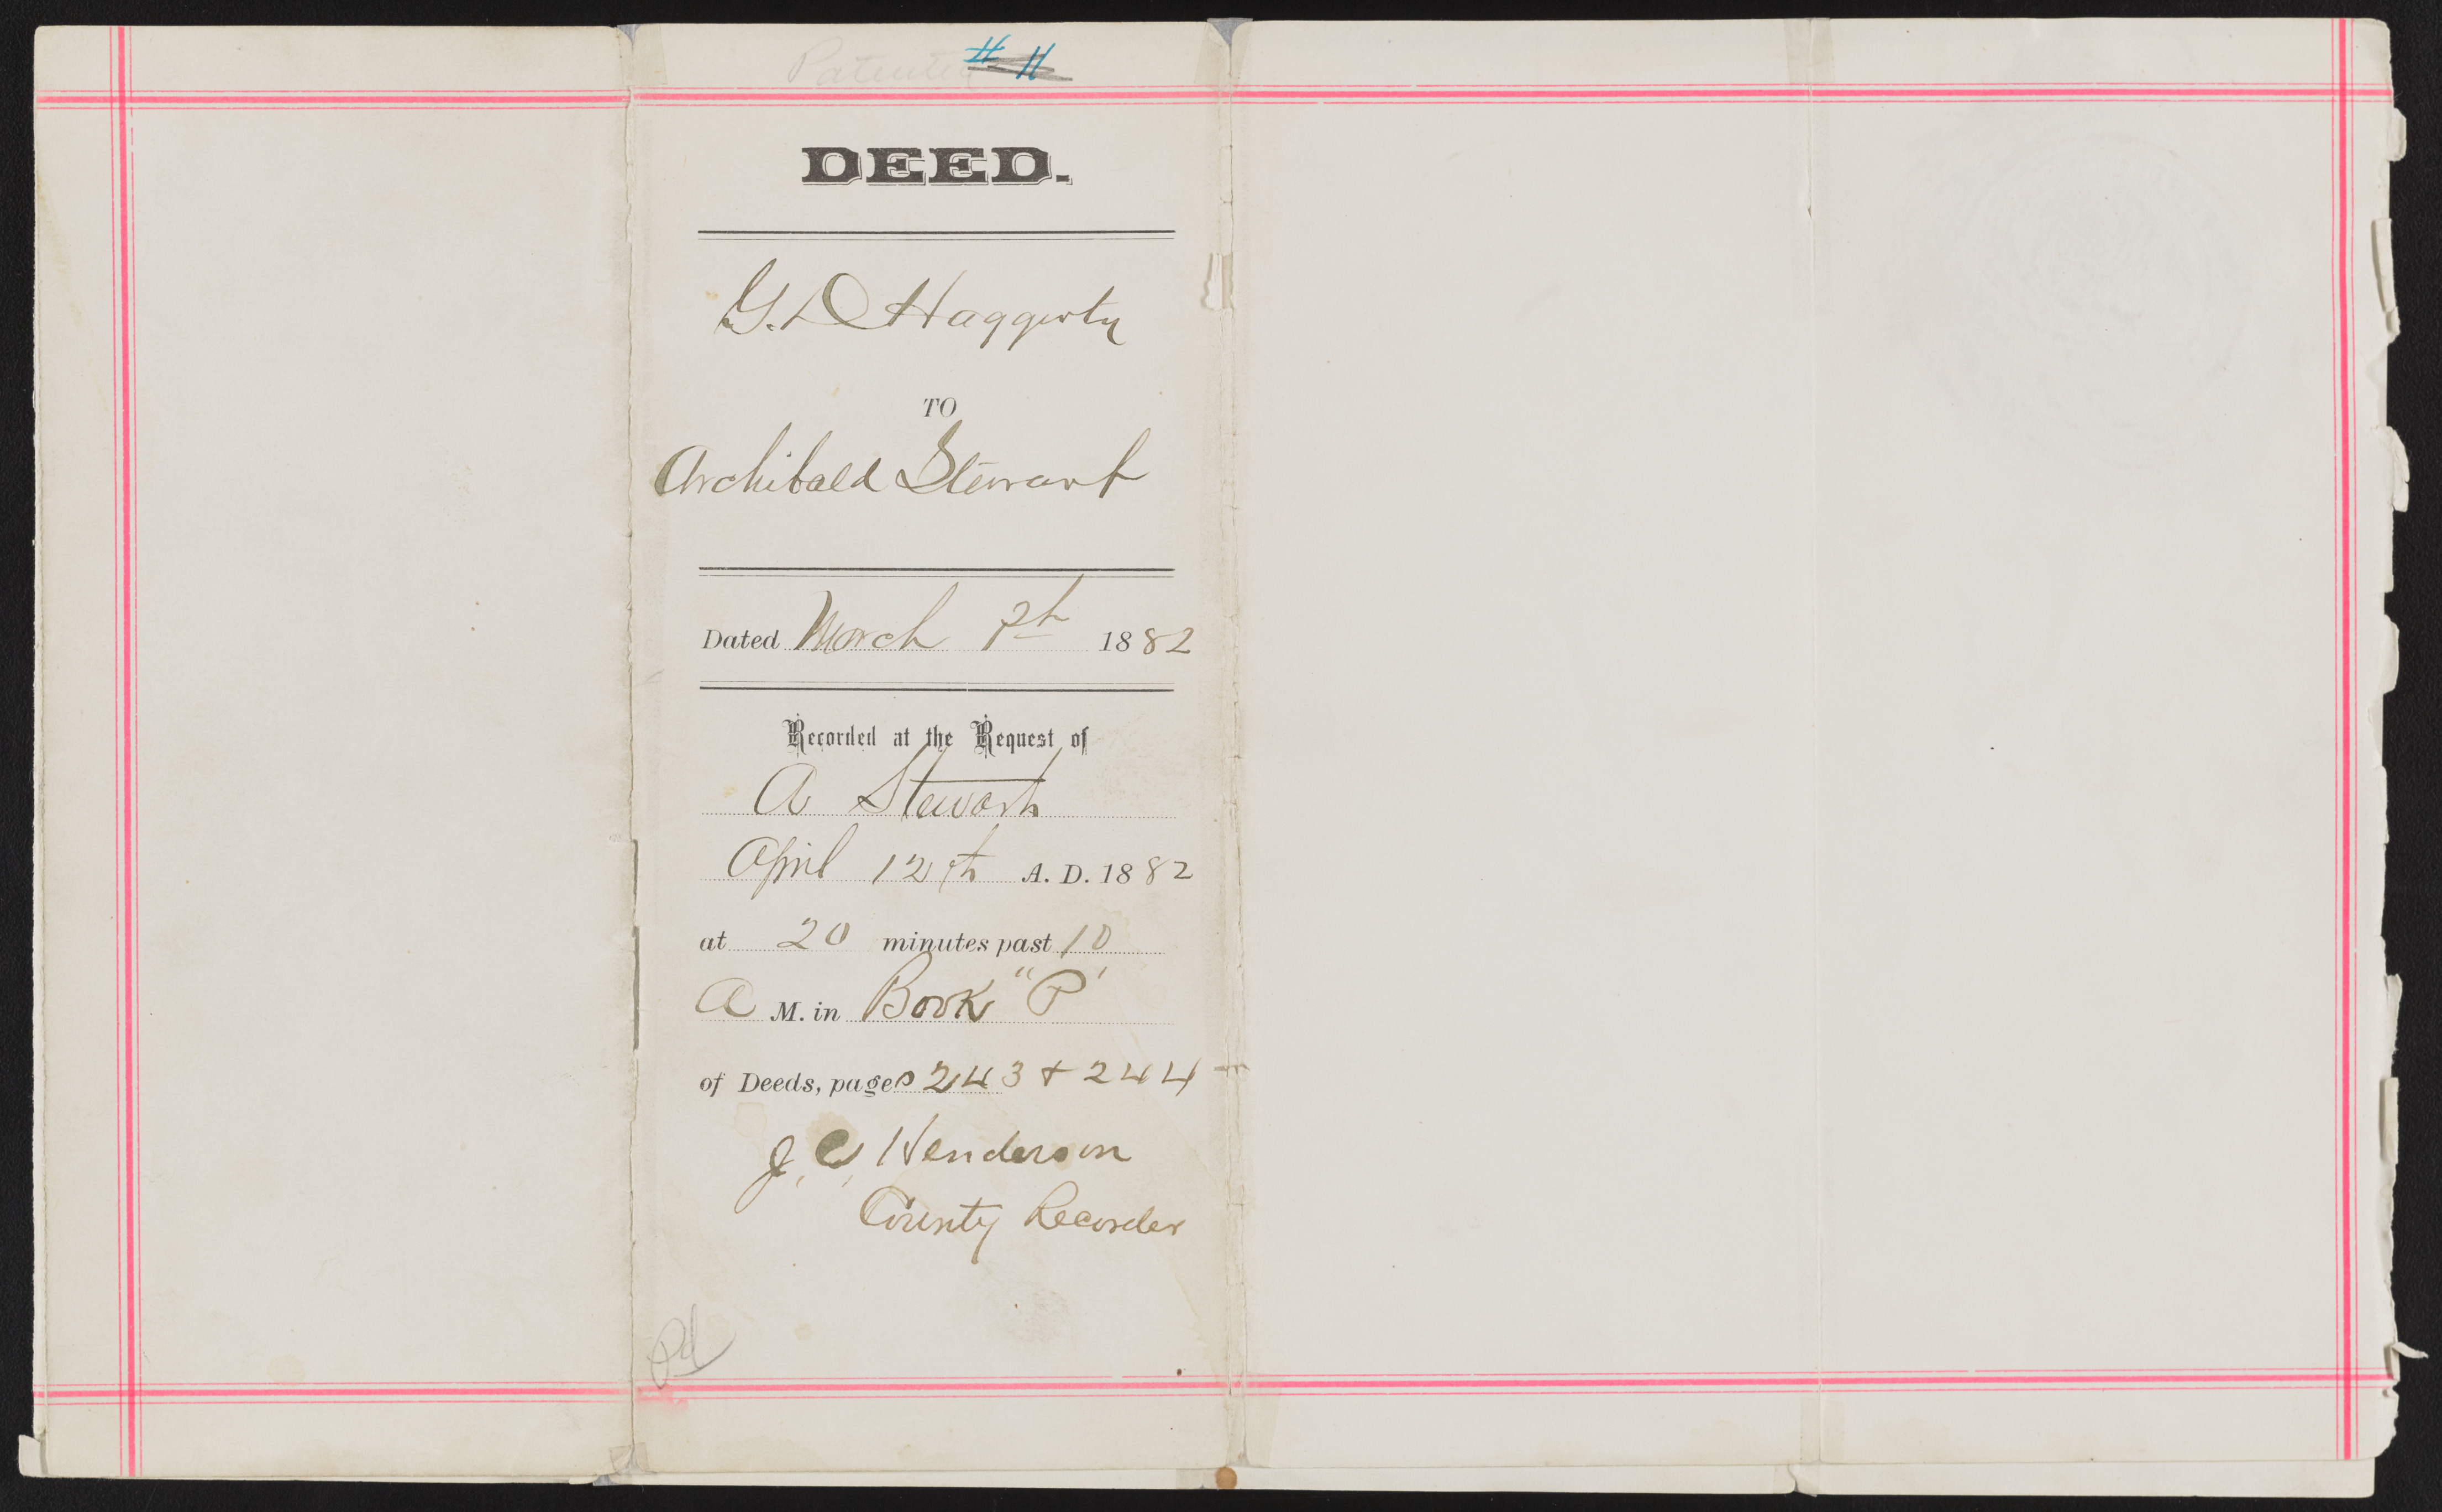 Patented # 11
DEED.
G. D Haggerty
TO
Archibald Stewart
Dated March 7th 1882
Recorded at the Request of
A Stewart
April 12th A. D. 1882
at 20 minutes past 10
A M. in Book "P"
of Deeds, pages 243 + 244
J. C. Henderson
County Recorder
Pd